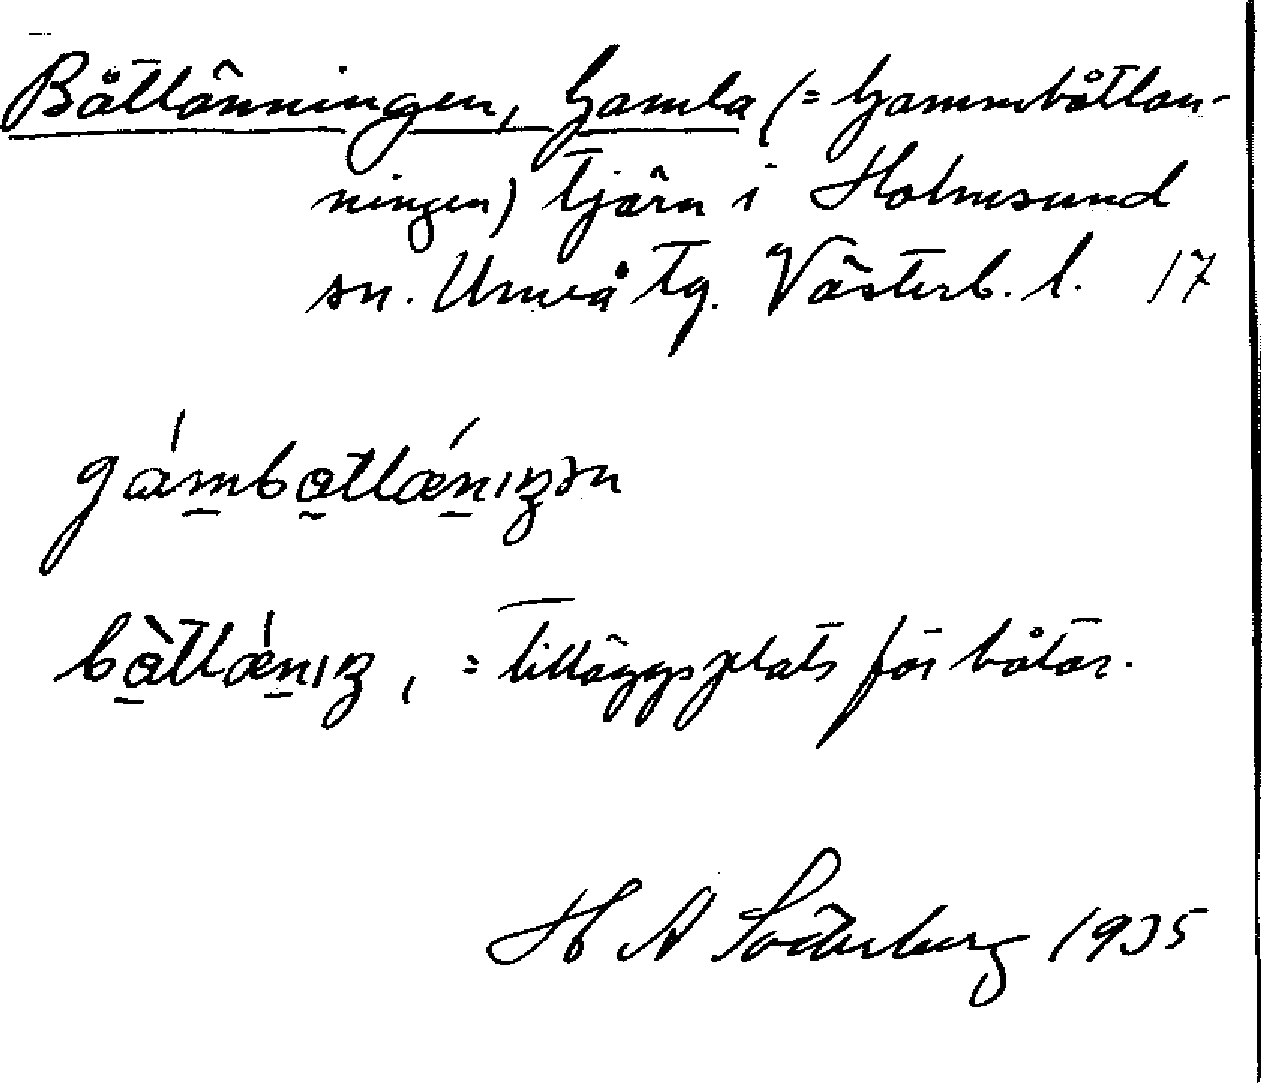 Båtlänningen, Gamla (= Gammbåtlän-
ningen) tjärn i Holmsund
sn. Umeå tg. Västerb. l. 17
gámba̰tlǽnıŋən
bà̰tlǽnıŋ, = tilläggsplats för båtar.
H A Söderberg 1935